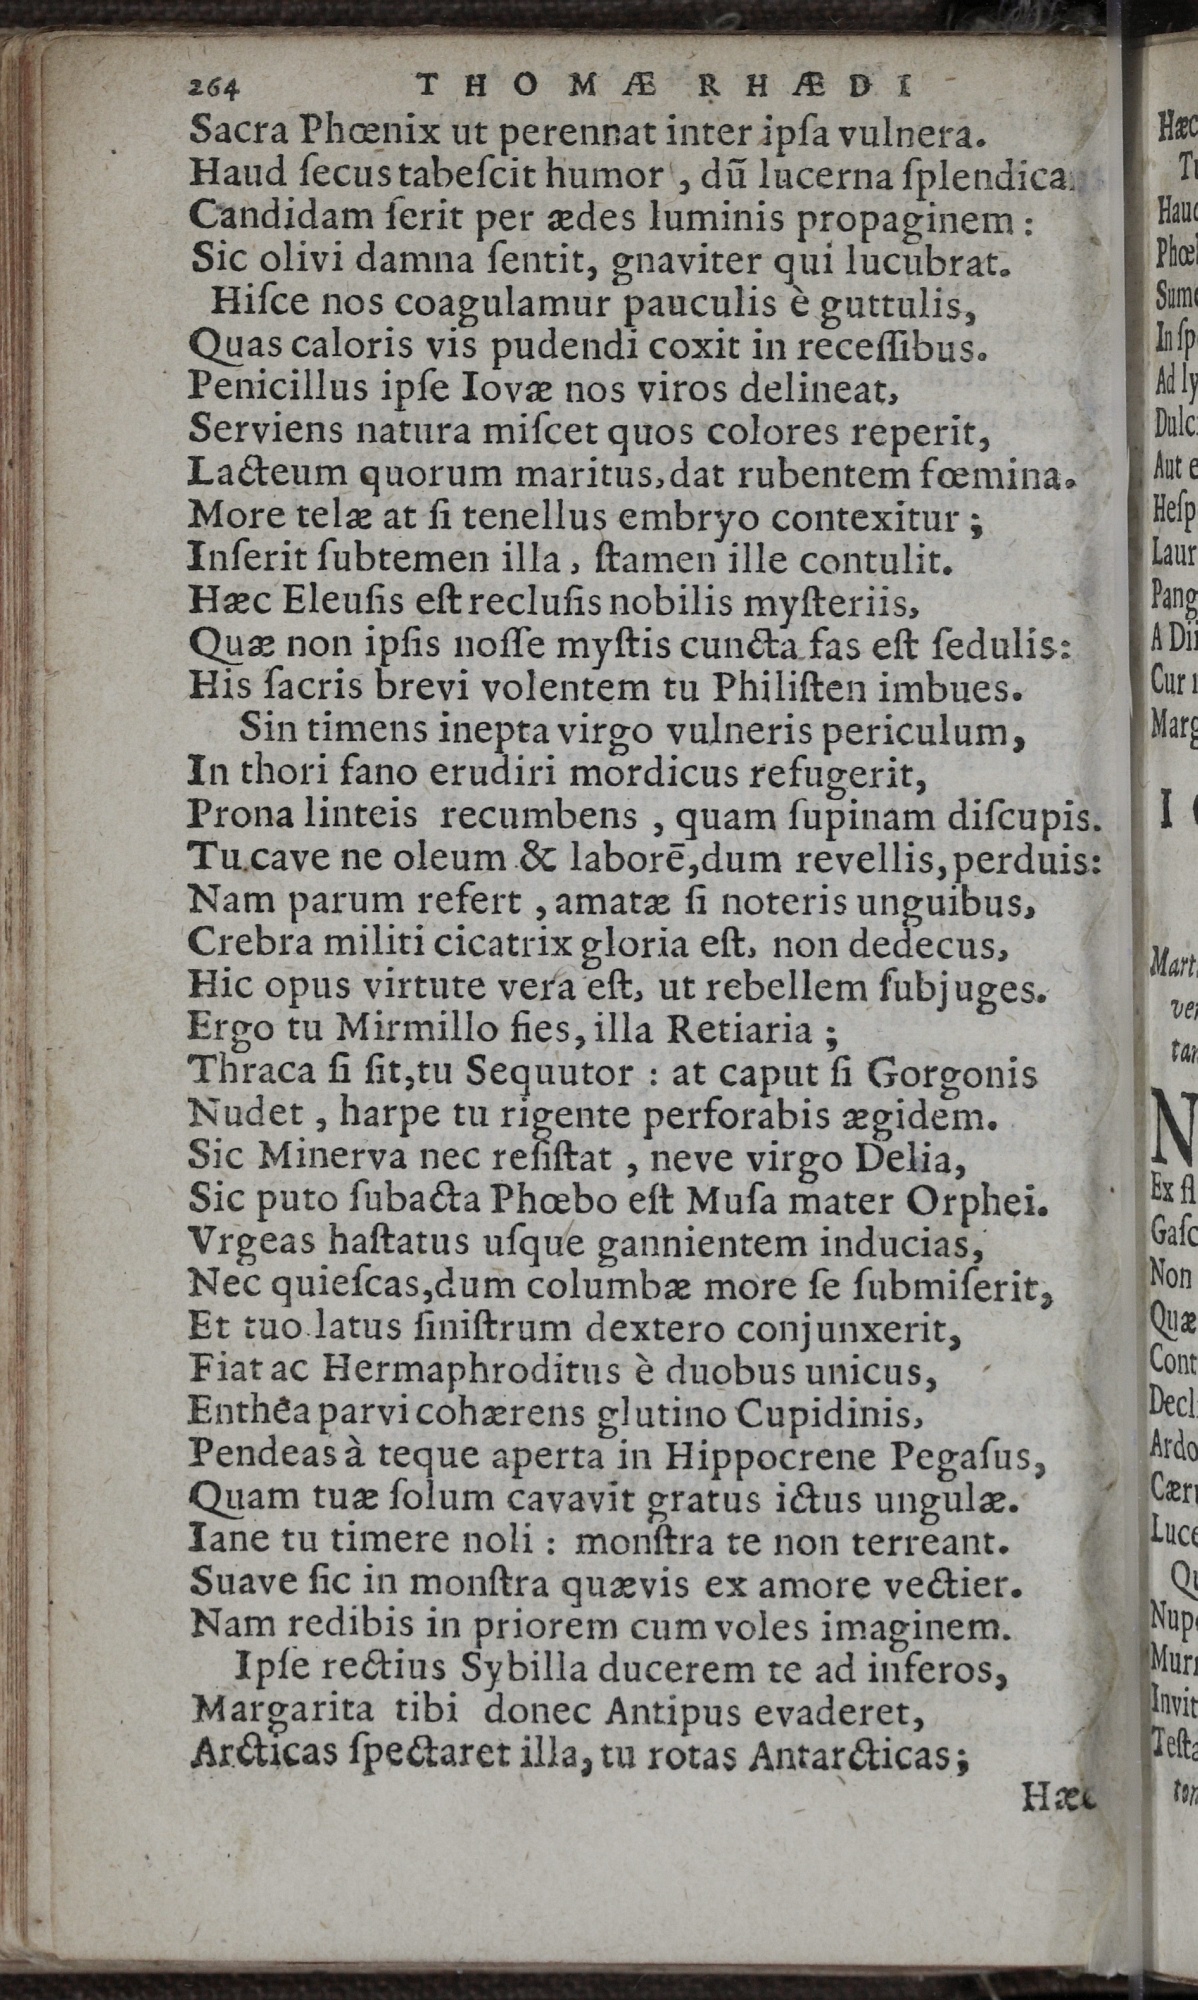 264 THOMÆ RHÆDI
Sacra Phœnix ut perennat inter ipſa vulnera.
Haud ſecus tabeſcit humor, dū lucerna ſplendica
Candidam ſerit per ædes luminis propaginem:
Sic olivi damna ſentit, gnaviter qui lucubrat.
Hiſce nos coagulamur pauculis è guttulis,
Quas caloris vis pudendi coxit in receſſibus.
Penicillus ipſe Iovæ nos viros delineat,
Serviens natura miſcet quos colores reperit,
Lacteum quorum maritus, dat rubentem fœmina.
More telæ at ſi tenellus embryo contexitur;
Inſerit ſubtemen illa, ſtamen ille contulit.
Hæc Eleuſis eſt recluſis nobilis myſteriis,
Quæ non ipſis noſſe myſtis cuncta fas eſt ſedulis:
His ſacris brevi volentem tu Philiſten imbues.
Sin timens inepta virgo vulneris periculum,
In thori fano erudiri mordicus refugerit,
Prona linteis recumbens, quam ſupinam diſcupis.
Tu cave ne oleum & laborē, dum revellis, perduis:
Nam parum refert, amatæ ſi noteris unguibus,
Crebra militi cicatrix gloria eſt, non dedecus,
Hic opus virtute vera eſt, ut rebellem ſubjuges.
Ergo tu Mirmillo fies, illa Retiaria;
Thraca ſi ſit, tu Sequutor: at caput ſi Gorgonis
Nudet, harpe tu rigente perforabis ægidem.
Sic Minerva nec reſiſtat, neve virgo Delia,
Sic puto ſubacta Phœbo eſt Muſa mater Orphei.
Vrgeas haſtatus uſque gannientem inducias,
Nec quieſcas, dum columbæ more ſe ſubmiſerit,
Et tuo latus ſiniſtrum dextero conjunxerit,
Fiat ac Hermaphroditus è duobus unicus,
Enthêa parvi cohærens glutino Cupidinis,
Pendeas à teque aperta in Hippocrene Pegaſus,
Quam tuæ ſolum cavavit gratus ictus ungulæ.
Iane tu timere noli: monſtra te non terreant.
Suave ſic in monſtra quævis ex amore vectier.
Nam redibis in priorem cum voles imaginem.
Ipſe rectius Sybilla ducerem te ad inferos,
Margarita tibi donec Antipus evaderet,
Arcticas ſpectaret illa, tu rotas Antarcticas;
Hæc
Hæc
Haud
Sume
In ſp
Ad ly
Dulc
Aut e
Heſp
Laur
Pang
A Dii
Cur
Marg
I
Mart
ver
tan
N
Ex fl
Gaſc
Non
Quæ
Cont
Decl
Ardo
Cær
Luce
Qu
Nup
Mur
Invit
Teſta